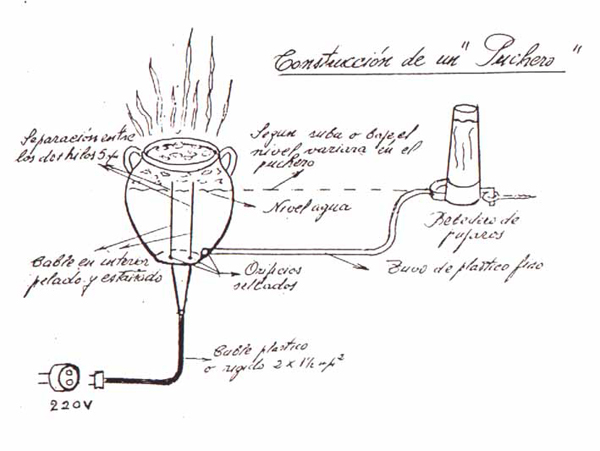 Construcción de un "Puchero"
Separación entre
los dos hilos 5
Segun suba o baje el
nivel variara en el
puchero
Nivel agua
Bebedero de
pajaros
Cable en interior
pelado y estañado
Orificios
sellados
Tuvo de plastico fino
Cable plastico
o rigido 2 x 1½ m/²
220V